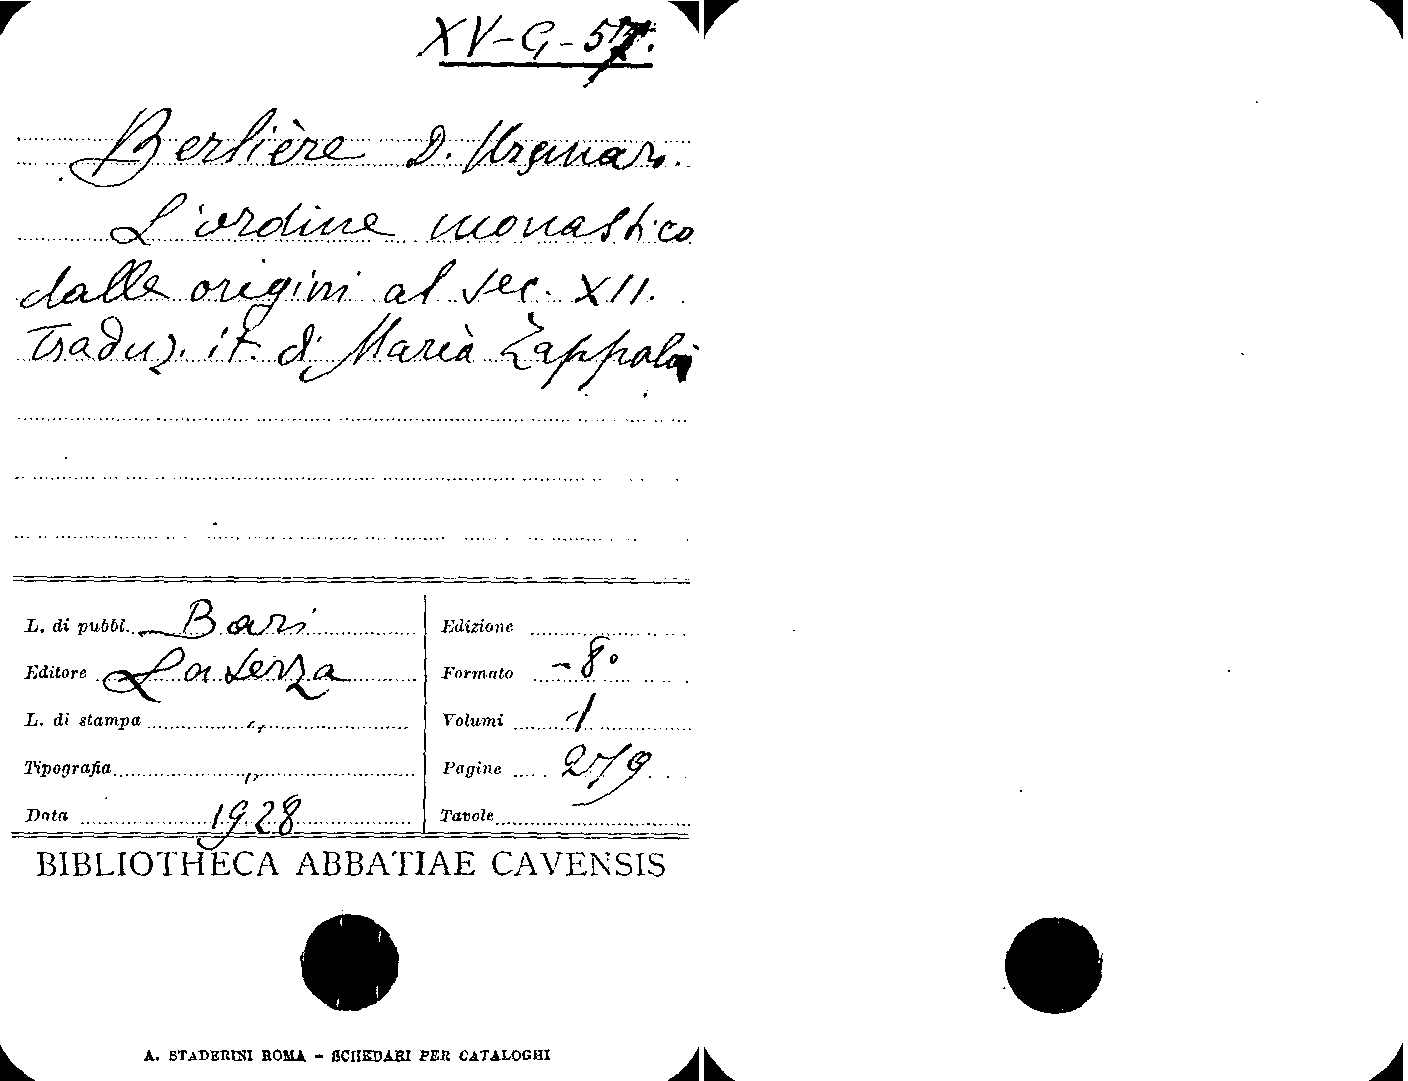 XV-G-57.
Berlière D. Ursmar.
L'ordine monastico
dalle origini al sec. XII.
Traduz. it. di Maria Zappalà
L. di pubbl. Bari
Editore Laterza
L. di stampa "
Tipografia "
Data 1928
Edizione
Formato -8°
Volumi 1
Pagine 279
Tavole
BIBLIOTHECA ABBATIAE CAVENSIS
A. STADERINI ROMA - SCHEDARI PER CATALOGHI